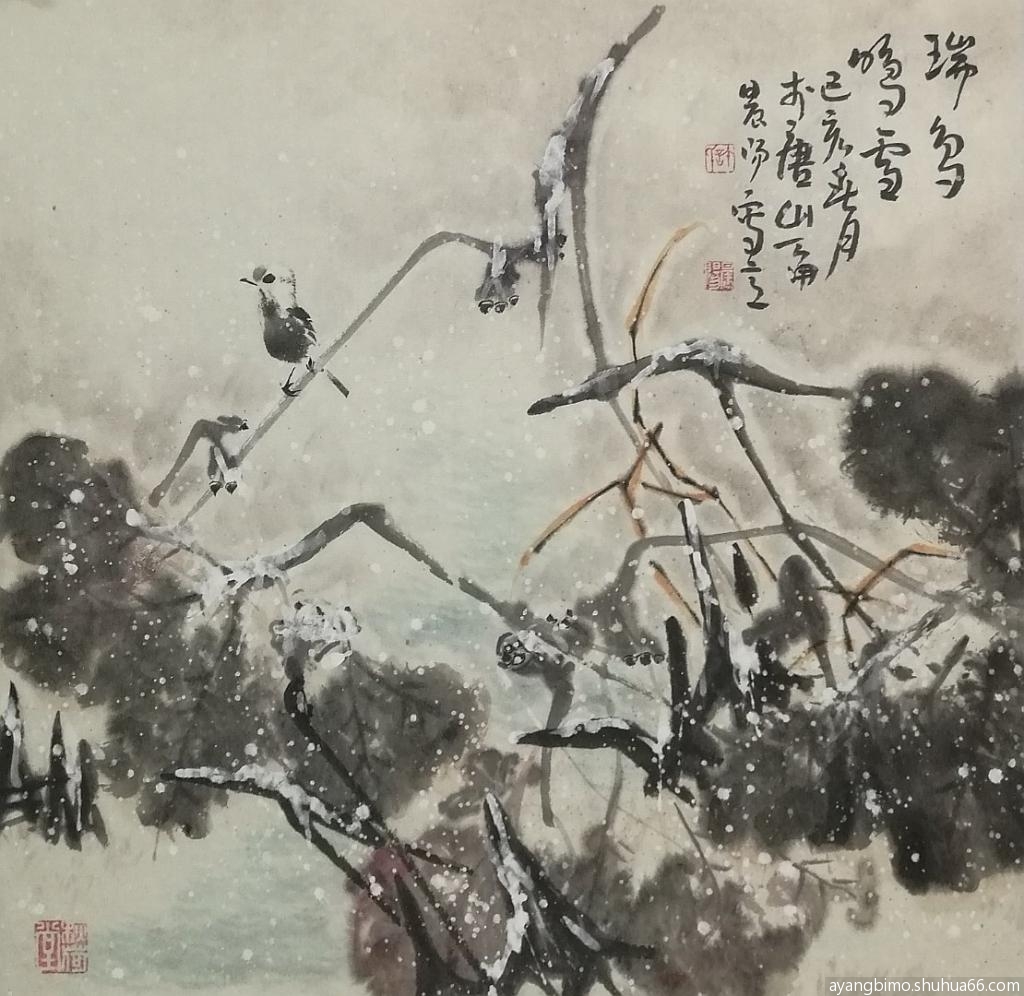 瑞鸟
鸣雪
己亥春月
于唐山一画
晨阳写之
ayangbimo.shuhua66.com